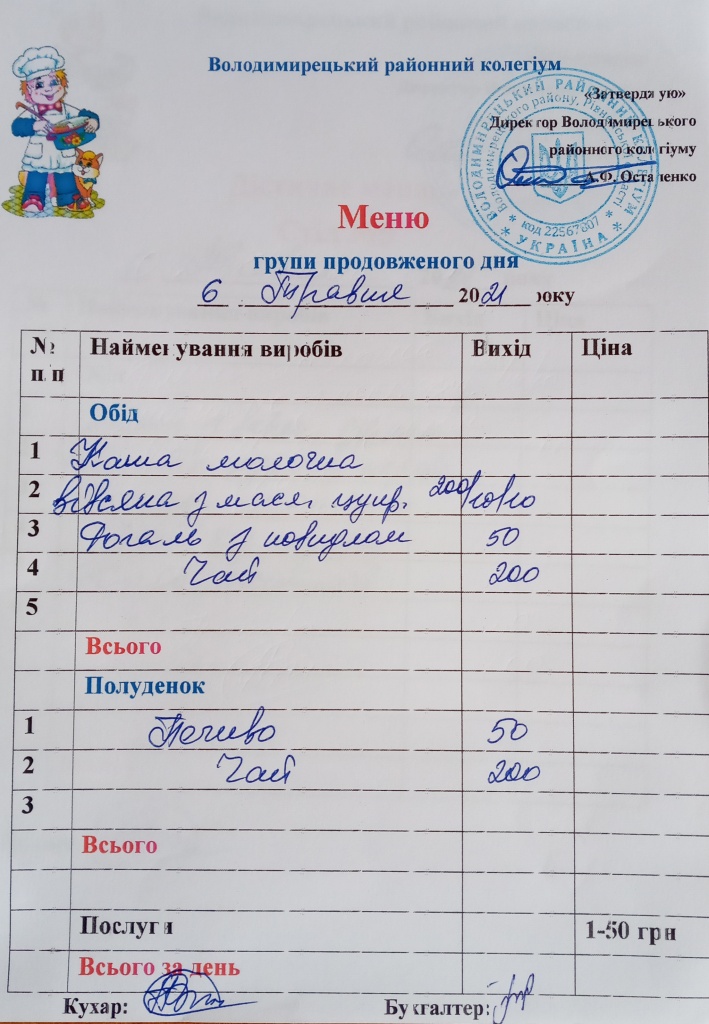 Володимирецький районний колегіум
«Затверджую»
Директор Володимирецького
районного колегіуму
А.Ф. Остапенко
ВОЛОДИМИРЕЦЬКИЙ РАЙОННИЙ КОЛЕГІУМ
Володимирецького району, Рівненської області
* код 22567607 *
* УКРАЇНА *
Меню
групи продовженого дня
6 Травня 2021 року
№ п/п Найменування виробів Вихід Ціна
Обід
1 Каша молочна
2 вівсяна з масл. цукр. 200/10/10
3 Рогаль з повидлом 50
4 Чай 200
5
Всього
Полуденок
1 Печиво 50
2 Чай 200
3
Всього
Послуги 1-50 грн
Всього за день
Кухар: Бухгалтер: